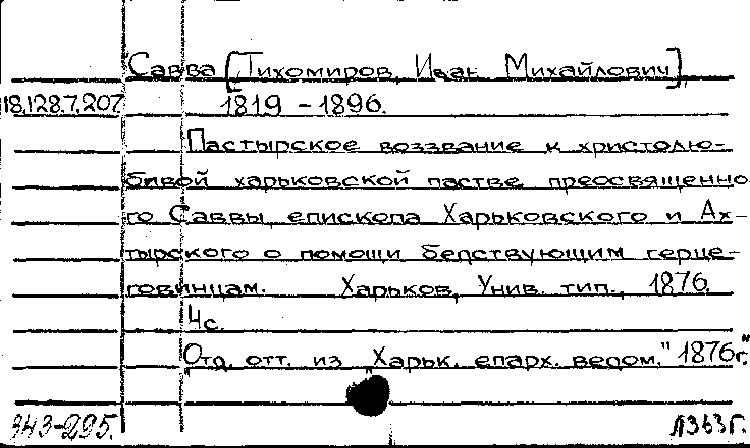 Савва [Тихомиров, Иван Михайлович]
18.128.7.207 1819 - 1896.
Пастырское воззвание к христолю-
бивой харьковской пастве преосвященно
го Саввы, епископа Харьковского и Ах-
тырского о помощи бедствующим герце-
говинцам. Харьков, Унив. тип., 1876.
4с.
"Отд. отт. из "Харьк. епарх. ведом." 1876г."
343-295. 1363г.